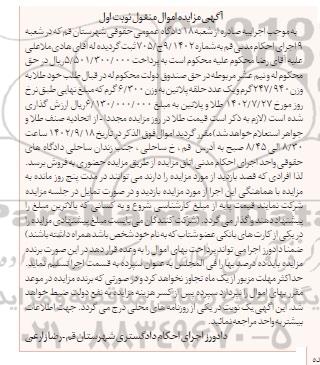 آگهی مزایده اموال منقول نوبت اول
به موجب اجراییه صادره از شعبه ۱۸ دادگاه عمومی حقوقی شهرستان قم که در شعبه
۹ اجرای احکام مدنی قم به شماره ۱۴۰۲/۹ج/۷۰۵ ثبت گردیده له آقای هادی ملاعلی
علیه آقای رضا محکوم علیه محکوم است به پرداخت ۵/۵۰۱/۰۰۰/۰۰۰ ریال در حق
محکوم له و نیم عشر مربوطه در حق صندوق دولت محکوم له در قبال طلب خود طلا به
وزن ۲۴۷/۹۴۰ گرم و یک عدد حلقه پلاتین به وزن ۶/۳۰۰ گرم که مبلغ نهایی طبق نرخ
روز مورخ ۱۴۰۲/۷/۲۷ طلا و پلاتین به مبلغ ۶/۱۳۰/۰۰۰/۰۰۰ ریال ارزش گذاری
شده است (لازم به ذکر است قیمت طلا در روز مزایده مجددا از اتحادیه صنف طلا و
جواهر استعلام خواهد شد) مقرر گردید اموال فوق الذکر در تاریخ ۱۴۰۲/۹/۱۸ ساعت
۸/۳۰ الی ۸/۴۵ صبح به آدرس قم، خ ساحلی، جنب زندان ساحلی دادگاه های
حقوقی واحد اجرای احکام مدنی اتاق مزایده از طریق مزایده حضوری به فروش برسد.
لذا افرادی که قصد بازدید از مورد مزایده را دارند می توانند در مدت پنج روز مانده به
مزایده با هماهنگی این اجرا از مورد مزایده بازدید و در صورت تمایل در جلسه مزایده
شرکت نمایند قیمت پایه از مبلغ کارشناسی شروع و به کسانی که بالاترین مبلغ را
پیشنهاد دهند واگذار می گردد. (شرکت کنندگان می بایست مبلغ پیشنهادی مزایده را
در یکی از کارت های بانکی عضو شتاب که به نام خود شخص باشد همراه داشته باشند)
ضمنا دادورز اجرا می تواند پرداخت بهای اموال را به وعده قرار دهد در این صورت برنده
مزایده باید ده درصد بها را فی المجلس به عنوان سپرده به قسمت اجرا تسلیم نماید.
حداکثر مهلت مزبور از یک ماه تجاوز نخواهد کرد و در صورتی که برنده مزایده در موعد
مقرر بهای اموال را نپردازد سپرده پس از کسر هزینه مزایده به نفع دولت ضبط خواهد
شد. این آگهی یک نوبت در یکی از روزنامه های محلی درج می گردد. جهت اطلاعات
بیشتر به واحد مراجعه نمائید.
دادورز اجرای احکام دادگستری شهرستان قم - رضا زارعی
۰۲۱-۸۸۳۴۹۶۷۰-۵